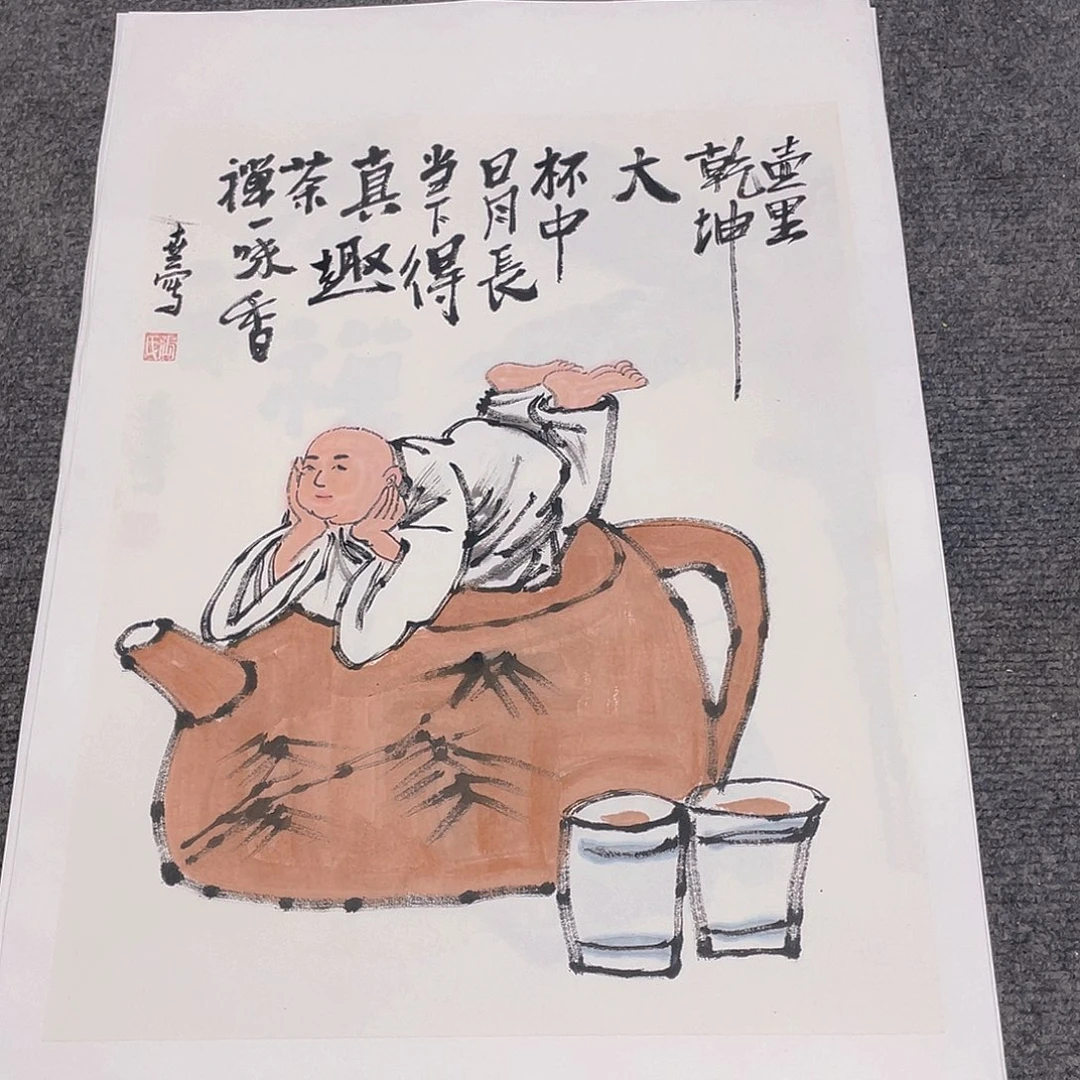 壺里
乾坤
大
杯中
日月長
当下得
真趣
茶
禪一味香